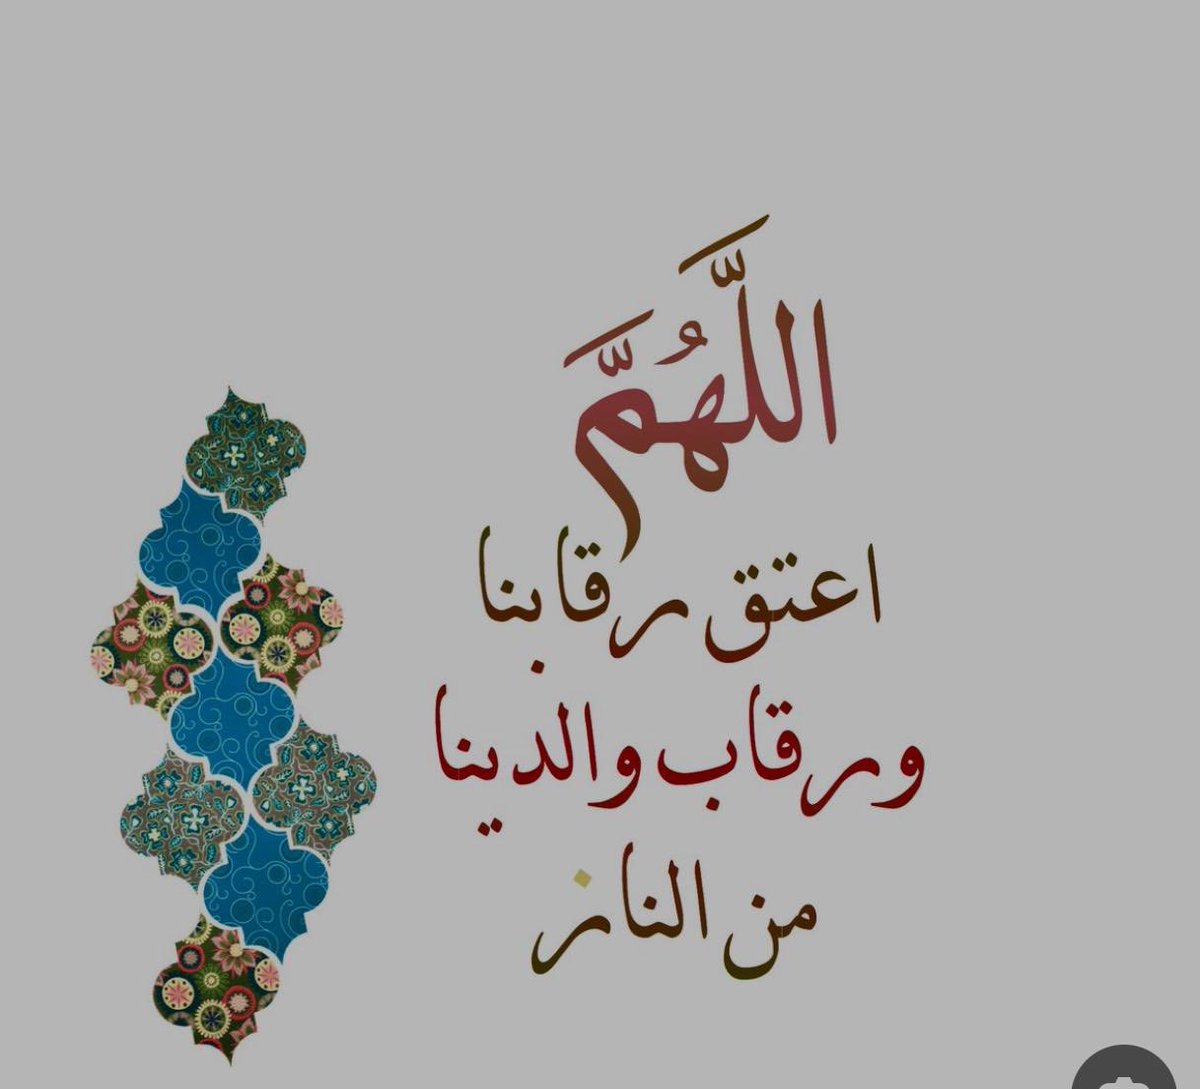 اللَّهُمَّ
اعتق رقابنا
ورقاب والدينا
من النار